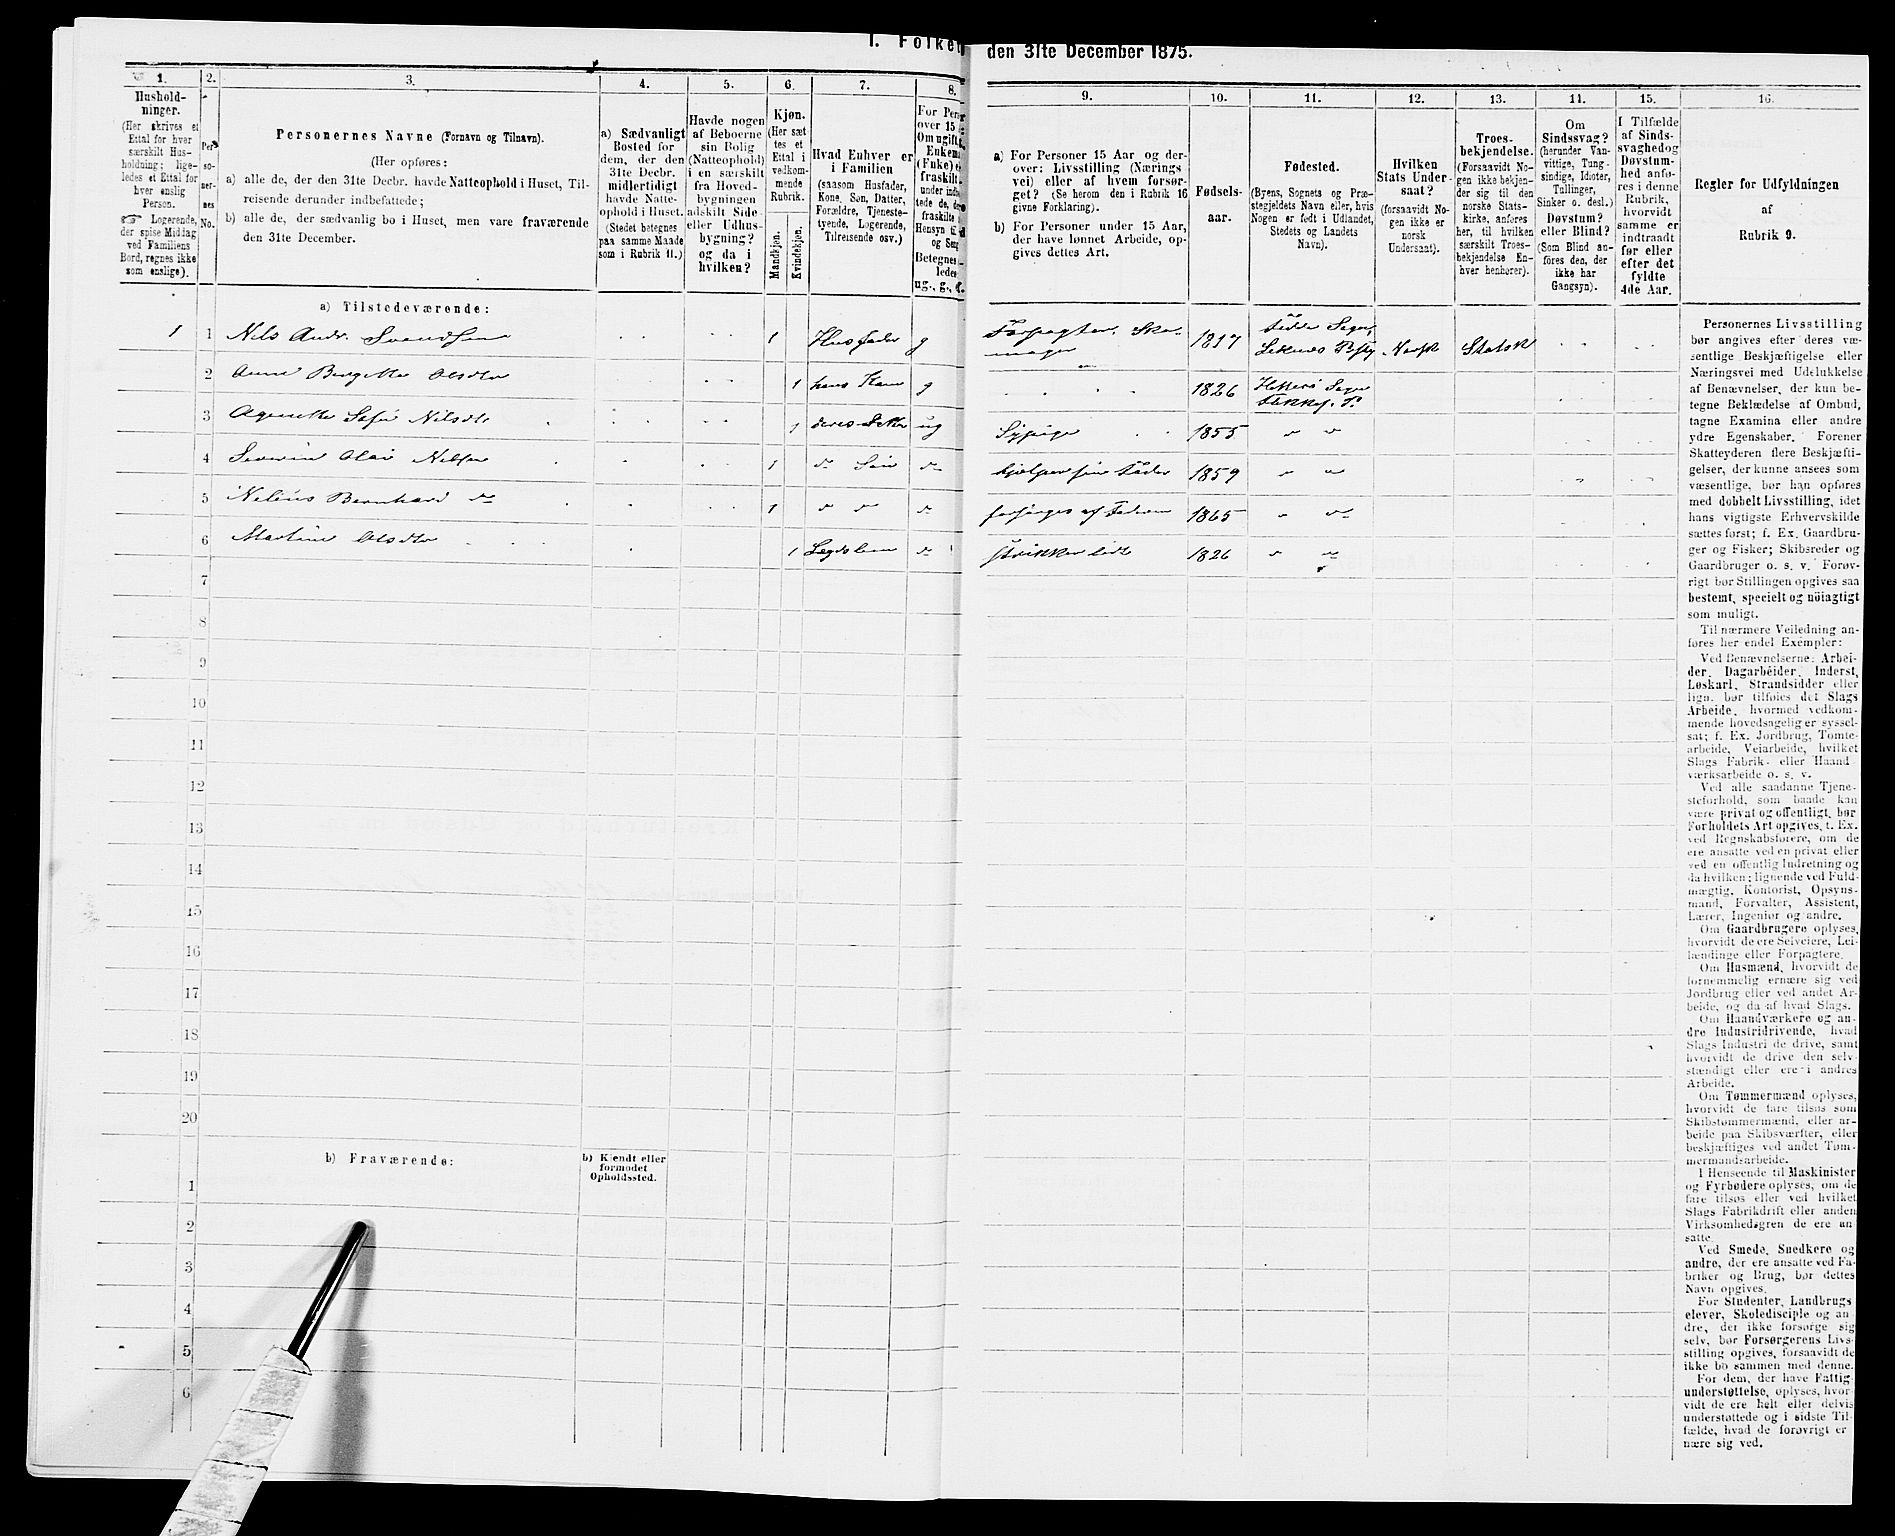 1. Folket
den 31te December 1875.
1.
Hushold-
ninger.
(Her skrives et
Ettal for hver
særskilt Hus-
holdning; lige-
ledes et Ettal for
hver enslig
Person.
Logerende,
der spise Middag
ved Familiens
Bord, regnes ikke
som enslige).
2.
Per-
so-
ner-
nes
No.
3.
Personernes Navne (Fornavn og Tilnavn).
(Her opføres:
a) alle de, der den 31te Decbr. havde Natteophold i Huset, Til-
reisende derunder indbefattede;
b) alle de, der sædvanlig bo i Huset, men vare fraværende
den 31te December.
4.
a) Sædvanligt
Bosted for
dem, der den
31te Decbr.
midlertidigt
havde Natte-
ophold i Huset.
(Stedet betegnes
paa samme Maade
som i Rubrik 11.)
5.
Havde nogen
af Beboerne
sin Bolig
(Natteophold)
i en særskilt
fra Hoved-
bygningen
adskilt Side-
eller Udhus-
bygning?
og da i
hvilken?
6.
Kjøn.
(Her sæt-
tes et
Ettal i
vedkom-
mende
Rubrik.
Mandkjøn.
Kvindekjøn.
7.
Hvad Enhver er
i Familien
(saasom Husfader,
Kone, Søn, Datter,
Forældre, Tjeneste-
tyende, Logerende,
Tilreisende osv.)
8.
For Per
over 15
Om ugift,
Enkem
(Fuke)
fraskilt
under ind
tede de, der
fraskilte
Hensyn til
og Seng
Betegnes
ledes
ug., g., e.
9.
a) For Personer 15 Aar og der-
over: Livsstilling (Nærings
vei) eller af hvem forsør-
get? (Se herom den i Rubrik 16
givne Forklaring).
b) For Personer under 15 Aar,
der have lønnet Arbeide, op-
gives dettes Art.
10.
Fødsels-
aar.
11.
Fødested.
(Byens, Sognets og Præ-
stegjeldets Navn eller, hvis
Nogen er født i Udlandet,
Stedets og Landets
Navn).
12.
Hvilken
Stats Under-
saat?
(forsaavidt No-
gen ikke er
norsk
Undersaat).
13.
Troes-
bekjendelse.
(Forsaavidt No-
gen ikke bekjen-
der sig til den
norske Stats-
kirke, anføres
her, til hvilken
særskilt Troes-
bekjendelse En-
hver henhører).
14.
Om
Sindssvag?
(herunder Van-
vittige, Tung-
sindige, Idioter,
Tullinger,
Sinker o. desl.)
Døvstum?
eller Blind?
(Som Blind an-
føres den, der
ikke har
Gangsyn).
15.
I Tilfælde
af Sinds-
svaghed og
Døvstum-
hed anfø-
res i denne
Rubrik,
hvorvidt
samme er
indtraadt
før eller
efter det
fyldte
4de Aar.
16.
Regler for Udfyldningen
af
Rubrik 9.
a) Tilstedeværende:
1 1 Nils Andr. Svendsen 1 Husfader g Forpagter, Sko-
mager 1817 Sogn, Norsk Statsk
2 Anne Bergitte Olsdtr 1 hans Kone g 1826 Sogn
3 Agnette Sofie Nilsdtr 1 deres ug Sypige 1855 " "
4 Severin Olai Nilsen 1 do Søn do hjælper sin Fader 1859 " "
5 Nelius Bernhard do 1 " " do forsørges af Faderen 1865 " "
6 Martine Olsdtr 1 Lægdslem do strikker lidt 1826 " "
7
8
9
10
11
12
13
14
15
16
17
18
19
20
b) Fraværende:
b) Kjendt eller
formodet
Opholdssted.
1
2
3
4
5
6
Personernes Livsstilling
bør angives efter deres væ-
sentlige Beskjæftigelse eller
Næringsvei med Udelukkelse
af Benævnelser, der kun be-
tegne Beklædelse af Ombud,
tagne Examina eller andre
ydre Egenskaber. Forener
Skatteyderen flere Beskjæfti-
gelser, der kunne ansees som
væsentlige, bør han opføres
med dobbelt Livsstilling, idet
hans vigtigste Erhvervskilde
sættes først; f. Ex. Gaardbru-
ger og Fisker; Skibsreder og
Gaardbruger o. s. v. Forøv-
rigt bør Stillingen opgives saa
bestemt, specielt og nöiagtigt
som muligt.
Til nærmere Veiledning an-
føres her endel Exempler:
Ved Benævnelserne: Arbei-
der, Dagarbeider, Inderst,
Løskarl, Strandsidder eller
lign. bør tilføies det Slags
Arbeide, hvormed vedkom-
mende hovedsagelig er syssel-
sat; f. Ex. Jordbrug, Tomte-
arbeide, Veiarbeide, hvilket
Slags Fabrik- eller Haand-
værksarbeide o. s. v.
Ved alle saadanne Tjene-
steforhold, som baade kan
være privat og offentligt, bør
Forholdets Art opgives, t. Ex.
ved Regnskabsførere, om de
ere ansatte ved en privat eller
ved en offentlig Indretning og
da hvilken; lignende ved Fuld-
mægtig, Kontorist, Opsyns-
mand, Forvalter, Assistent,
Lærer, Ingeniør og andre.
Om Gaardbrugere oplyses,
hvorvidt de ere Selveiere, Lei-
lændinge eller Forpagtere.
Om Husmænd, hvorvidt de
fornemmelig ernære sig ved
Jordbrug eller ved andet Ar-
beide, og da af hvad Slags.
Om Haandværkere og an-
dre Industridrivende, hvad
Slags Industri de drive, samt
hvorvidt de drive den selv-
stændigt eller ere i andres
Arbeide.
Om Tømmermænd oplyses,
hvorvidt de fare tilsøs som
Skibstømmermænd, eller ar-
beide paa Skibsværfter, eller
beskjæftiges ved andet Tøm-
mermandsarbeide.
I Henseende til Maskinister
og Fyrbødere oplyses, om de
fare tilsøs eller ved hvilket
Slags Fabrikdrift eller anden
Virksomhedsgren de ere an-
satte.
Ved Smede, Snedkere og
andre, der ere ansatte ved Fa-
briker og Brug, bør dettes
Navn opgives.
For Studenter, Landbrugs-
elever, Skoledisciple og an-
dre, der ikke forsørge sig
selv, bør Forsørgerens Livs-
stilling opgives, forsaavidt de
ikke bo sammen med denne.
For dem, der have Fattig-
understøttelse, oplyses, hvor-
vidt de ere helt eller delvis
understøttede og i sidste Til-
fælde, hvad de forøvrigt er-
nære sig ved.